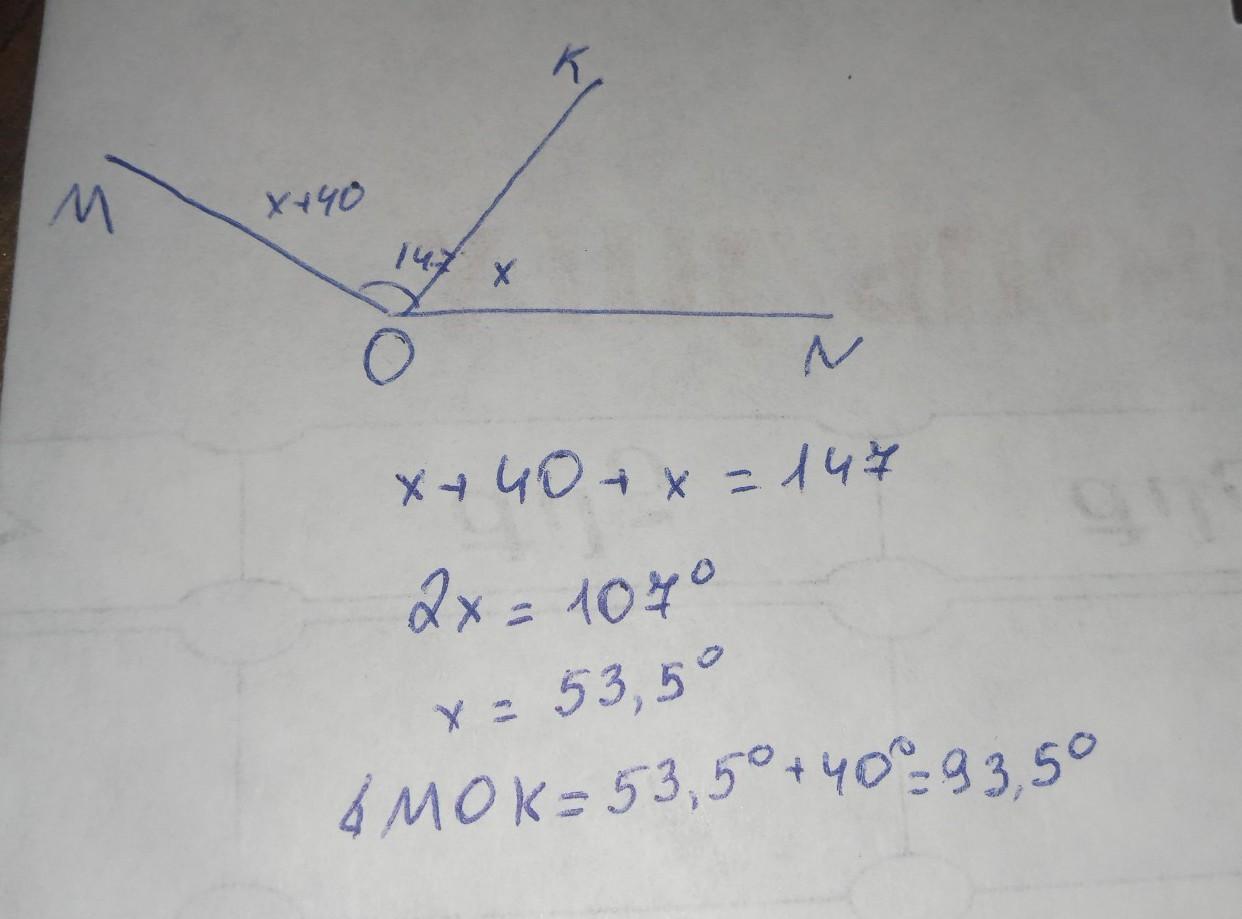 K
M
x+40
147
x
O
N
x+40+x=147
2x=107°
x=53,5°
∡MOK=53,5°+40°=93,5°